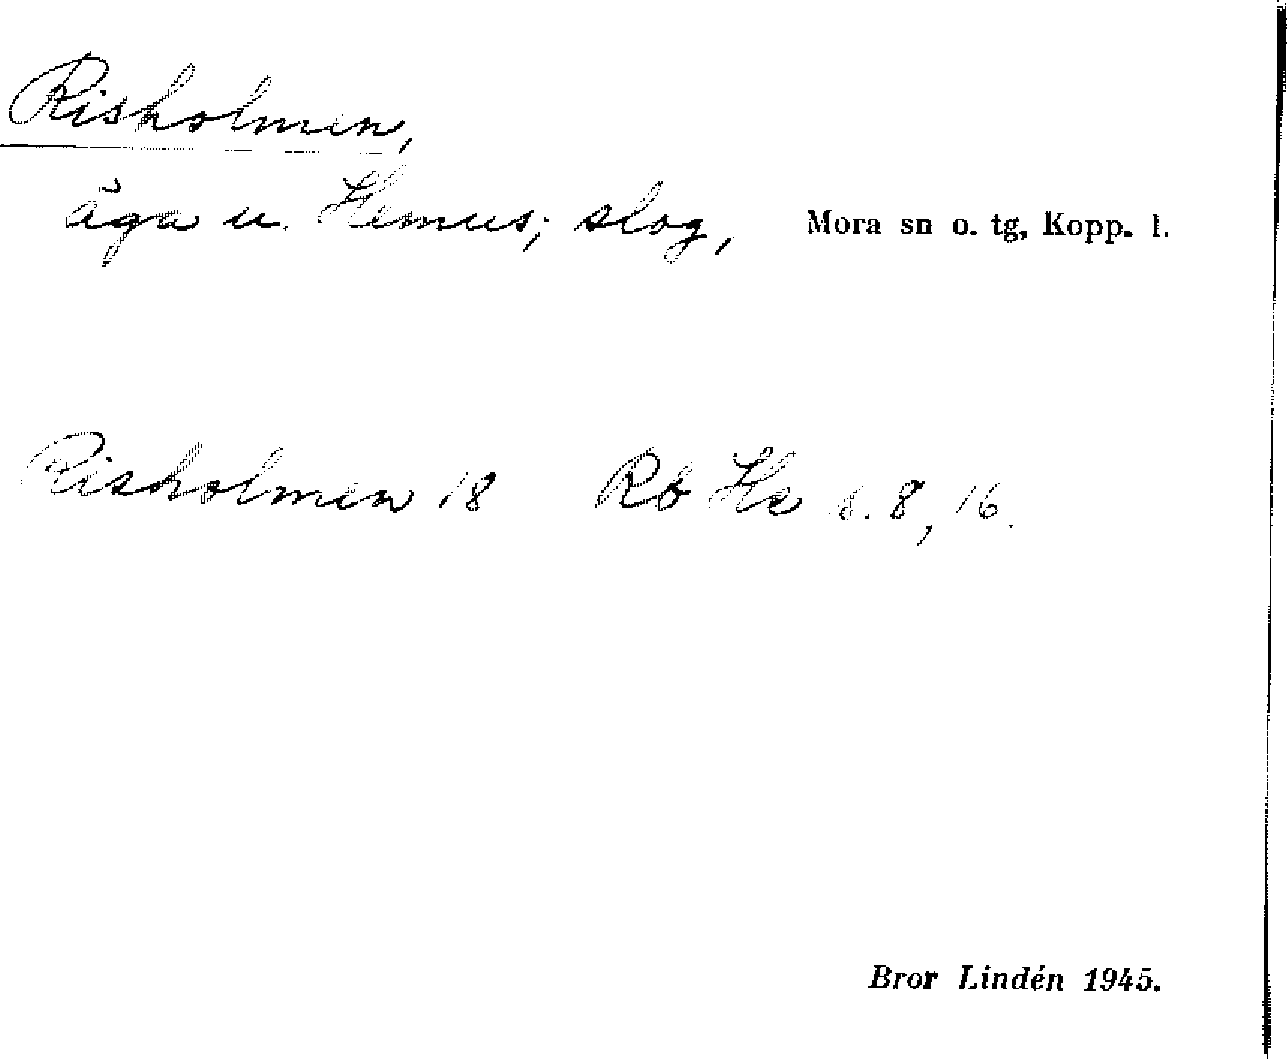 Risholmen,
äga u. Hemus; slog, Mora sn o. tg, Kopp. l.
Risholmen 18 Rb He s. 8, 16.
Bror Lindén 1945.